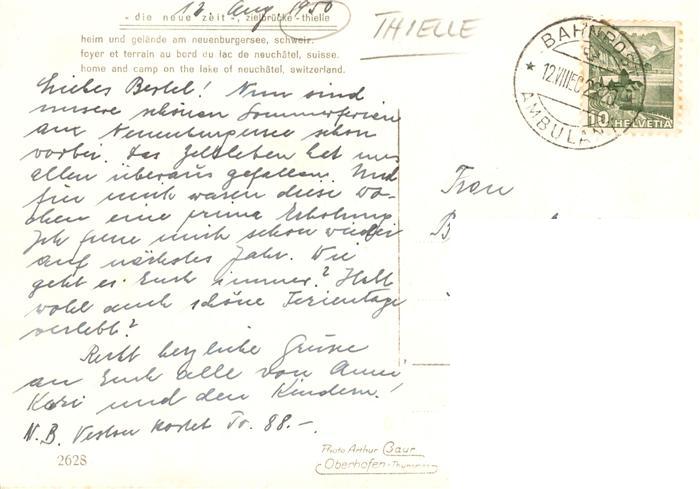 12. Aug 1950
- die neue zeit -, zielbrücke-thielle
THIELLE
heim und gelände am neuenburgersee, schweiz.
foyer et terrain au bord du lac de neuchâtel, suisse.
home and camp on the lake of neuchâtel, switzerland.
BAHNPOST
12.VIII.50
AMBULANT
10 HELVETIA
Liebes Bertel! Nun sind
unsere schönen Sommerferien
am Neuenburgersee schon
vorbei. Das Zeltleben hat uns
allen überaus gefallen. Und
für mich waren diese Wo-
chen eine prima Erholung.
Ich freue mich schon wieder
auf nächstes Jahr. Wie
geht es Euch immer? Habt
wohl auch schöne Ferientage
verlebt?
Recht herzliche Grüsse
an Euch alle von Anni
Kari und den Kindern.
N.B. Veston kostet Fr. 88.-
Frau
B
2628
Photo Arthur Baur
Oberhofen-Thunersee